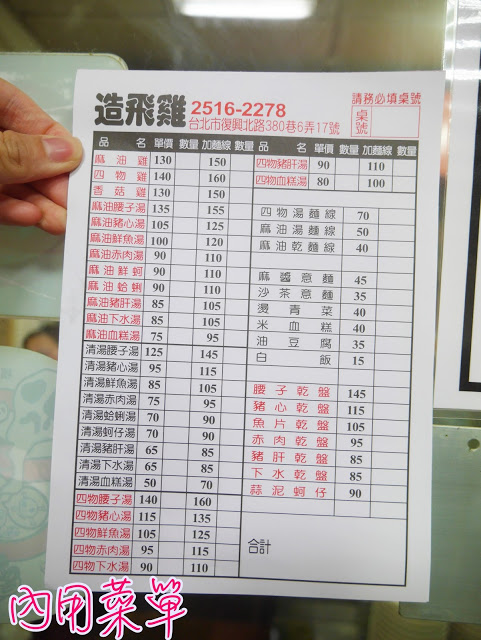 造飛雞 2516-2278
台北市復興北路380巷6弄17號
請務必填桌號
桌號
品 名 單價 數量 加麵線 數量
麻油雞 130 150
四物雞 140 160
香菇雞 130 150
麻油腰子湯 135 155
麻油豬心湯 105 125
麻油鮮魚湯 100 120
麻油赤肉湯 90 110
麻油鮮蚵 90 110
麻油蛤蜊 90 110
麻油豬肝湯 85 105
麻油下水湯 85 105
麻油血糕湯 75 95
清湯腰子湯 125 145
清湯豬心湯 95 115
清湯鮮魚湯 85 105
清湯赤肉湯 75 95
清湯蛤蜊湯 70 90
清湯蚵仔湯 70 90
清湯豬肝湯 65 85
清湯下水湯 65 85
清湯血糕湯 50 70
四物腰子湯 140 160
四物豬心湯 115 135
四物鮮魚湯 105 125
四物赤肉湯 95 115
四物下水湯 90 110
品 名 單價 數量 加麵線 數量
四物豬肝湯 90 110
四物血糕湯 80 100
四物湯麵線 70
麻油湯麵線 50
麻油乾麵線 40
麻醬意麵 45
沙茶意麵 35
燙青菜 40
米血糕 40
油豆腐 35
白飯 15
腰子乾盤 145
豬心乾盤 115
魚片乾盤 105
赤肉乾盤 95
豬肝乾盤 85
下水乾盤 85
蒜泥蚵仔 90
合計
內用菜單